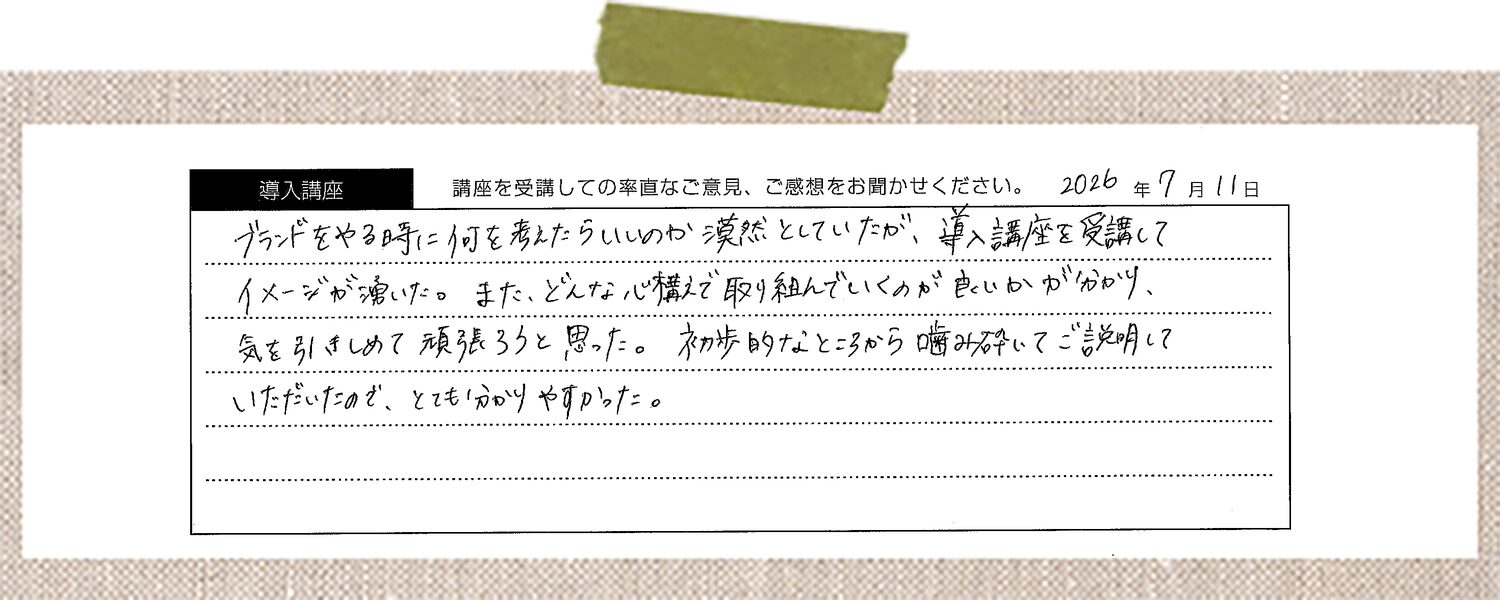 導入講座 講座を受講しての率直なご意見、ご感想をお聞かせください。 2026年7月11日
ブランドをやる時に何を考えたらいいのか漠然としていたが、導入講座を受講して
イメージが湧いた。また、どんな心構えで取り組んでいくのが良いかが分かり、
気を引きしめて頑張ろうと思った。初歩的なところから噛み砕いてご説明して
いただいたので、とても分かりやすかった。